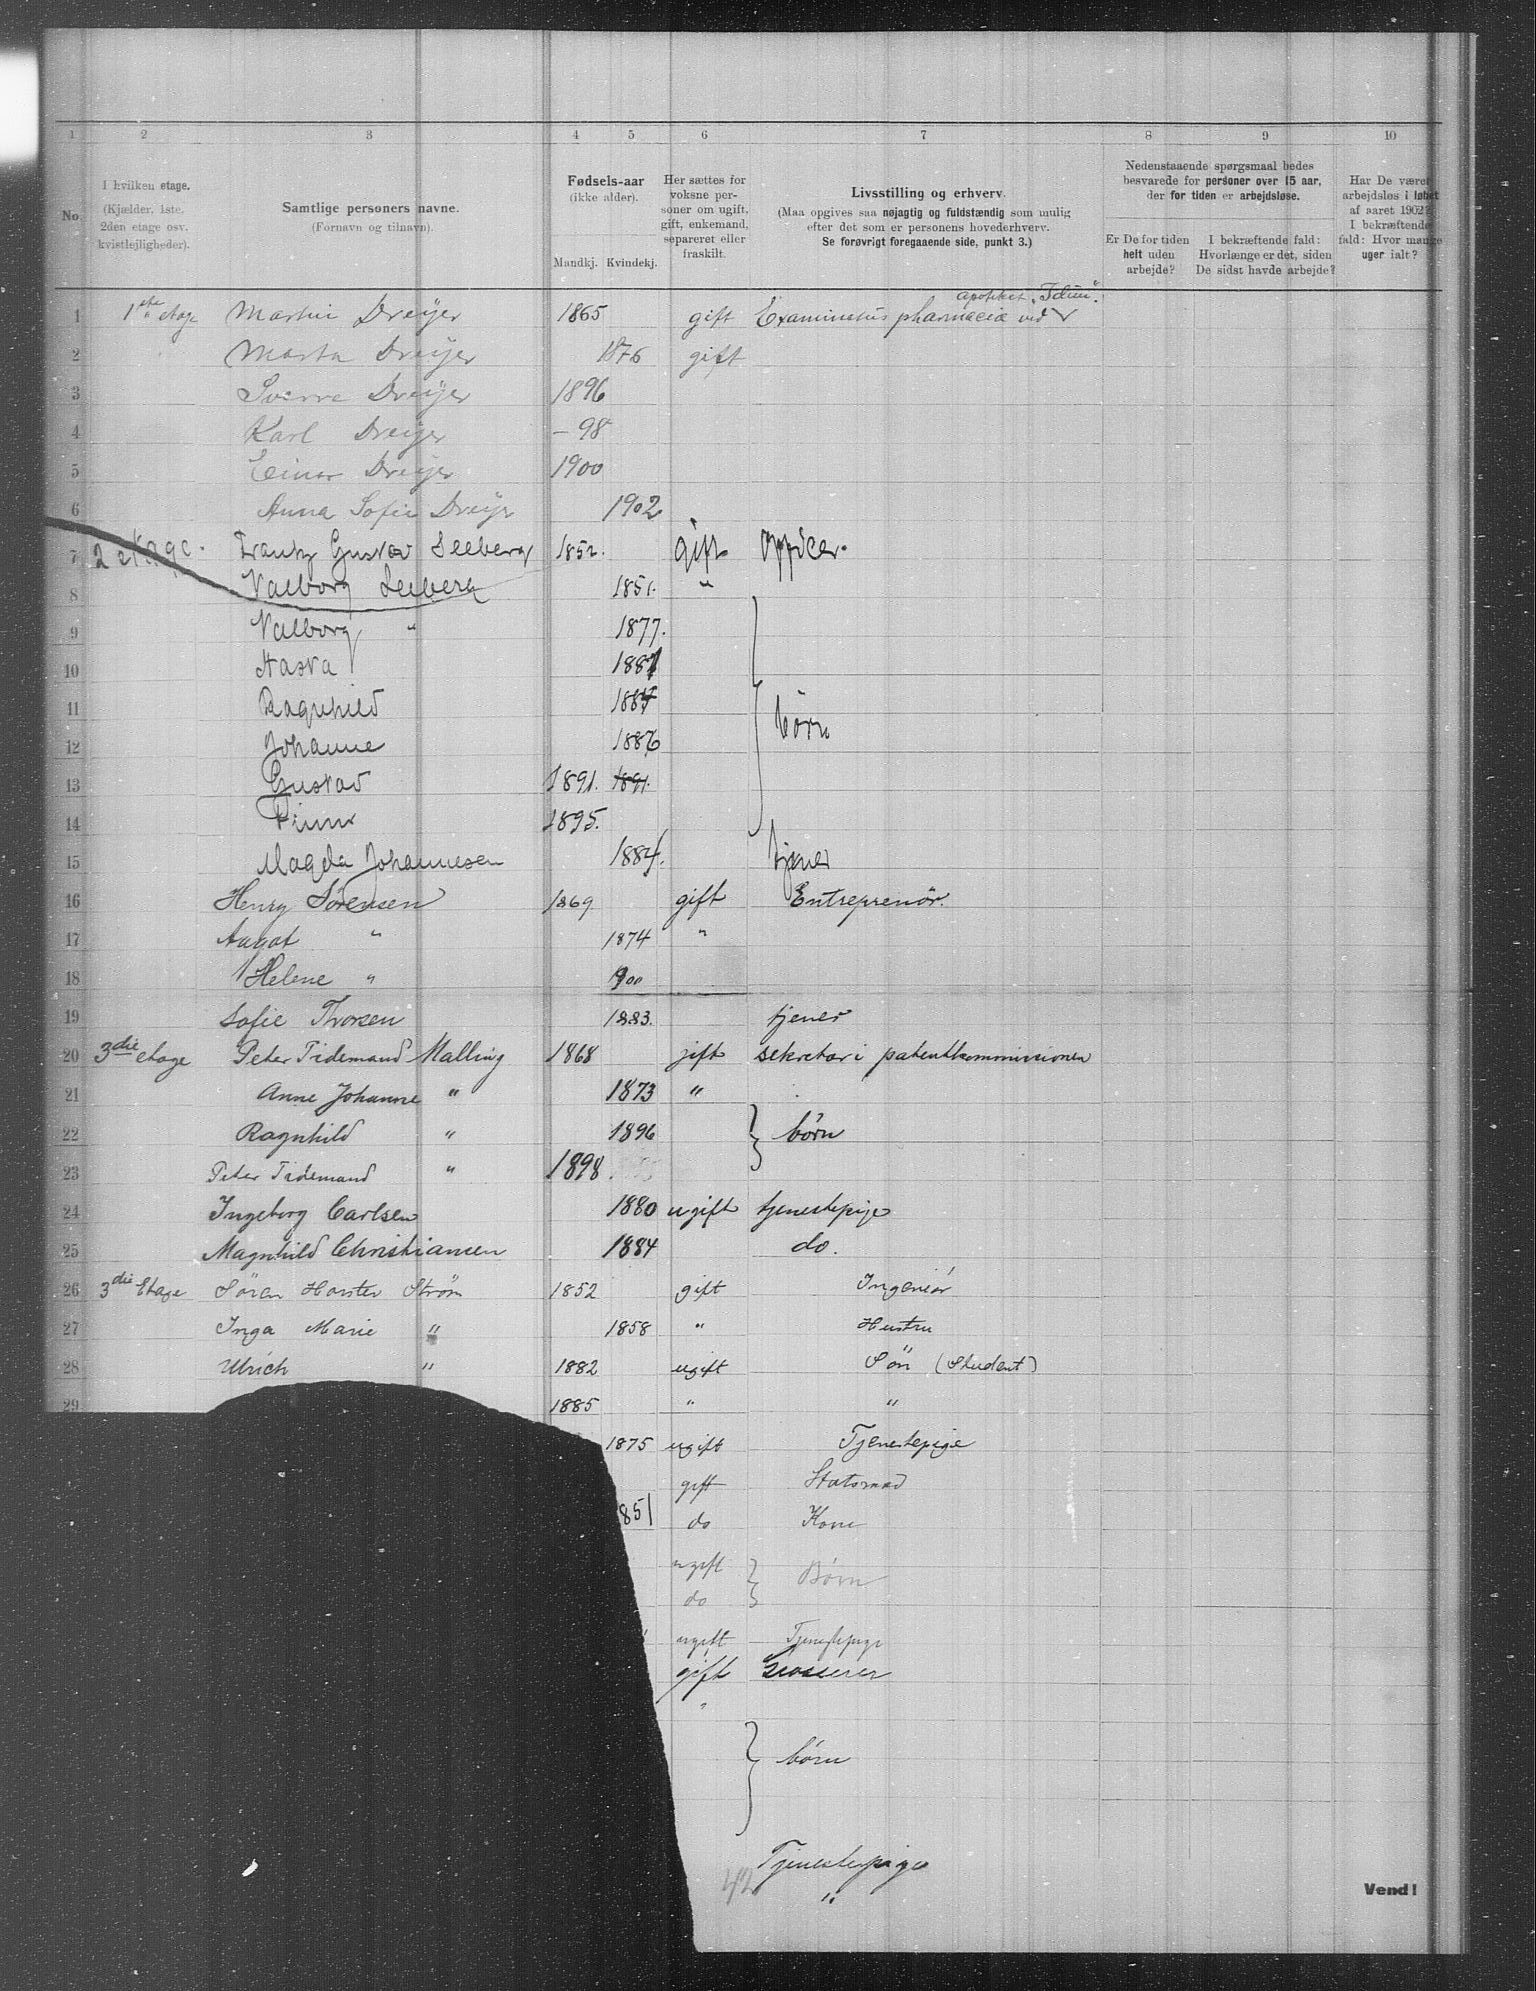 1 2 3 4 5 6 7 8 9 10
No.
I hvilken etage.
(Kjælder, 1ste,
2den etage osv.
kvistlejligheder).
Samtlige personers navne.
(Fornavn og tilnavn).
Fødsels-aar
(ikke alder).
Mandkj. Kvindekj.
Her sættes for
voksne per-
soner om ugift,
gift, enkemand,
separeret eller
fraskilt.
Livsstilling og erhverv.
(Maa opgives saa nøjagtig og fuldstændig som mulig
efter det som er personens hovederhverv.
Se forøvrigt foregaaende side, punkt 3.)
Nedenstaaende spørgsmaal bedes
besvarede for personer over 15 aar,
der for tiden er arbejdsløse.
Er De for tiden
helt uden
arbejde?
I bekræftende fald:
Hvorlænge er det, siden
De sidst havde arbejde?
Har De været
arbejdsløs i løbet
af aaret 1902?
I bekræftende
fald: Hvor mange
uger ialt?
apotheket "Idun".
1 1ste etage Martin Dreijer 1865 gift Examinatus pharmaciæ ved
2 Marta Dreijer 1876 gift
3 Sverre Dreijer 1896
4 Karl Dreijer - 98
5 Einar Dreijer 1900
6 Anna Sofie Dreijer 1902
7 2 etage. Frantz Gustav Seeberg 1852. gift officer.
8 Valborg Seeberg 1851. "
9 Valborg " 1877.
10 Aasta 1881
11 Ragnhild 1884 børn
12 Johanne 1886
13 Gustav 1891. 1891.
14 Finn 1895.
15 Magda Johannesen 1884. tjener
16 Henry Sørensen 1869 gift Entreprenör.
17 Aagot " 1874 "
18 Helene " 1900
19 Sofie Thorsen 1883. tjener
20 3die etage Peter Tidemand Malling 1868 gift sekretær i patentkommissionen
21 Anne Johanne " 1873 "
22 Ragnhild " 1896 børn
23 Peter Tidemand " 1898
24 Ingeborg Carlsen 1880 ugift tjenestepige
25 Magnhild Christiansen 1884 do.
26 3die Etage Sören Horster Ström 1852 gift Ingeniör
27 Inga Marie " 1858 " Hustru
28 Ulrich " 1882 ugift Sön (Student)
29 1885 " "
1875 ugift Tjenestepige
gift Statsraad
851 do Kone
ugift Børn
do
ugift Tjenestepige
gift Grosserer
"
børn
Tjenestepige
42 "
Vend!